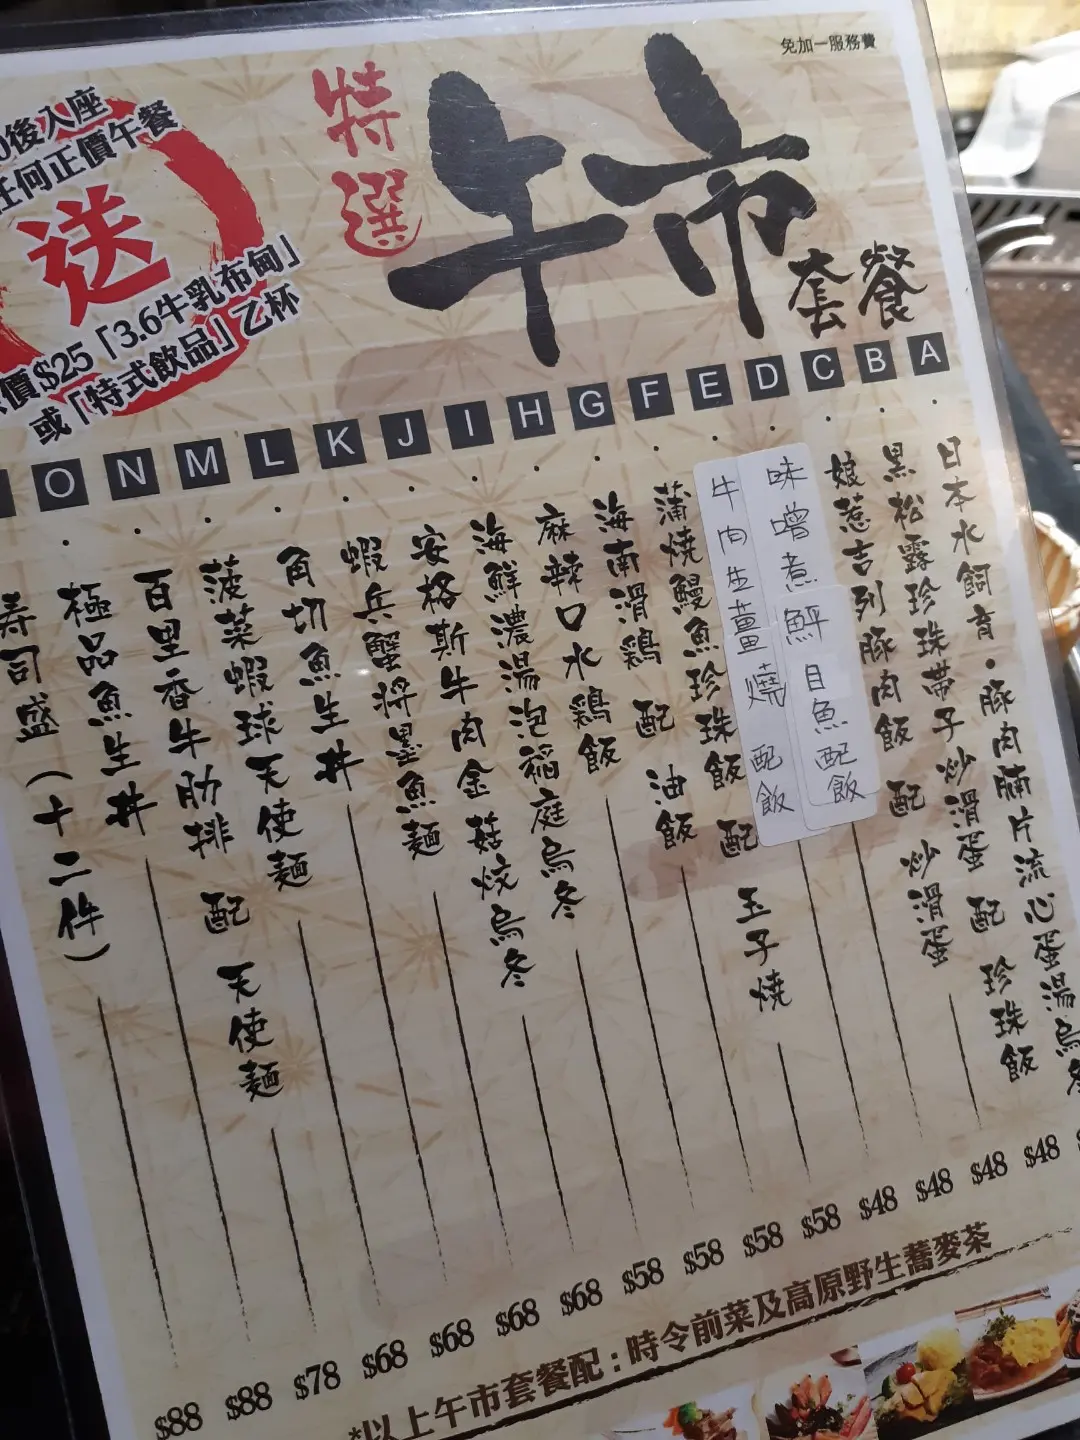 免加一服務費
0後入座
任何正價午餐
送
價$25「3.6牛乳布甸」
或「特式飲品」乙杯
特選
午市
套餐
A
B
C
D
E
F
G
H
I
J
K
L
M
N
O
日本水飼育・豚肉腩片流心蛋湯烏冬
黑松露珍珠帶子炒滑蛋 配 珍珠飯
娘惹吉列豚肉飯 配 炒滑蛋
味噌煮鮃目魚配飯
牛肉生薑燒 配飯
蒲燒鰻魚珍珠飯 配 玉子燒
海南滑鶏 配 油飯
麻辣口水鶏飯
海鮮濃湯泡稲庭烏冬
安格斯牛肉金菇炆烏冬
蝦兵蟹將墨魚麵
角切魚生丼
菠菜蝦球天使麵
百里香牛肋排 配 天使麵
極品魚生丼
寿司盛(十二件)
$48
$48
$48
$48
$58
$58
$58
$58
$68
$68
$68
$68
$78
$88
$88
*以上午市套餐配:時令前菜及高原野生蕎麥茶